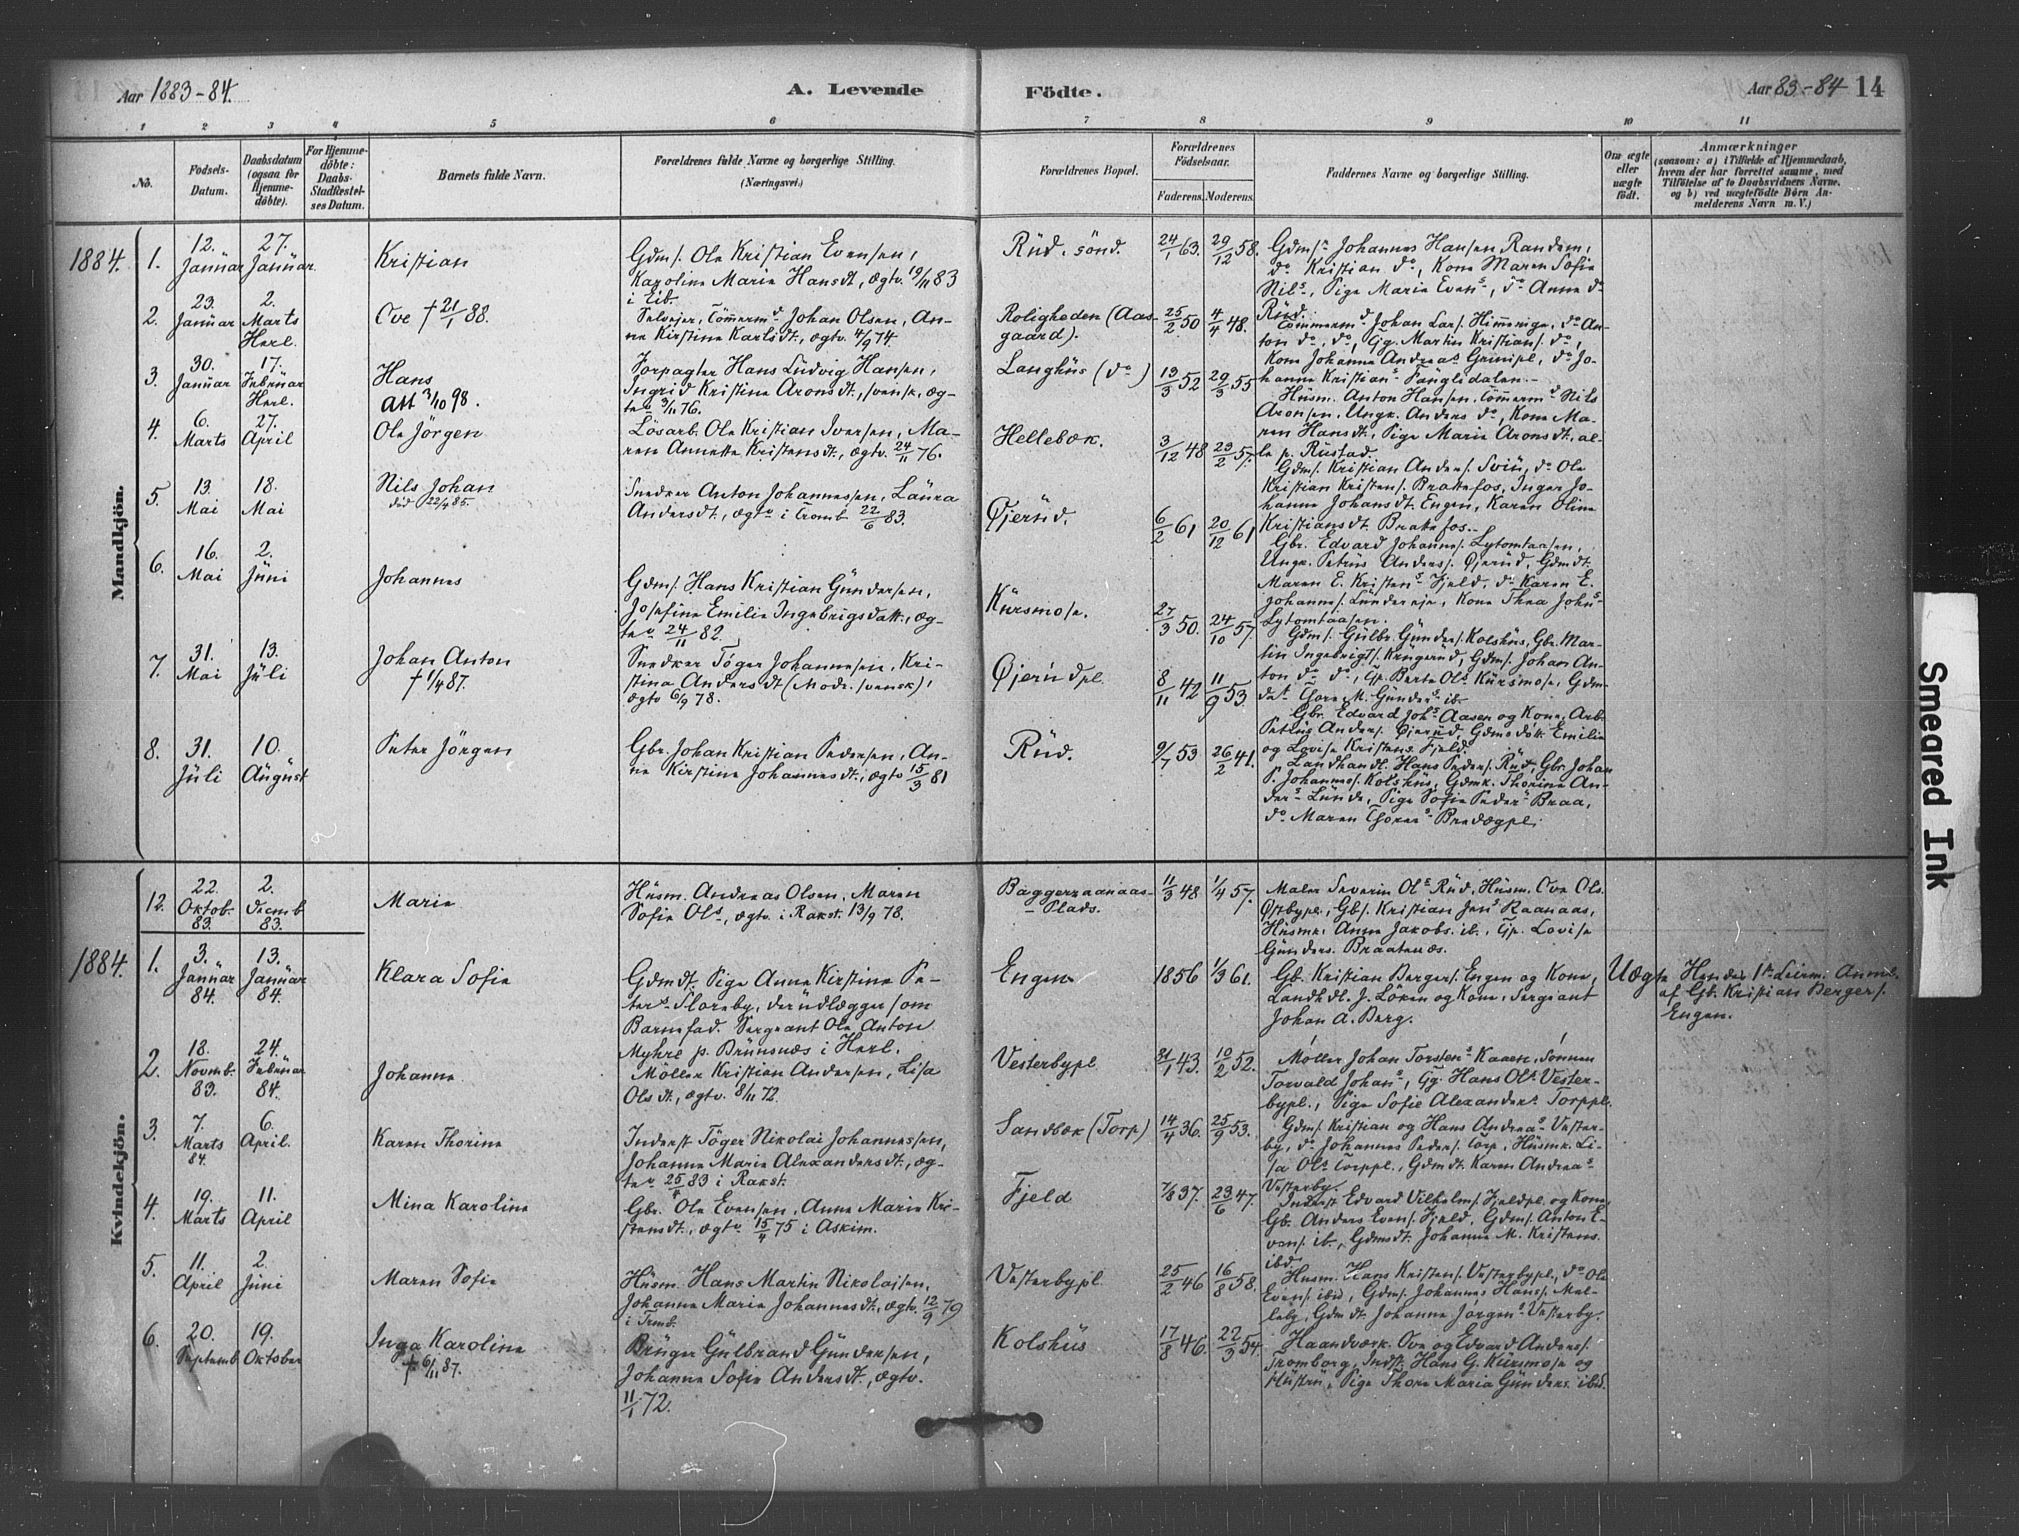 Aar 1883-84.
A. Levende
Födte.
Aar 83-84 14
1 2 3 4 5 6 7 8 9 10 11
No.
Födsels-
Datum.
Daabsdatum
(ogsaa for
Hjemme-
döbte).
For Hjemme-
döbte:
Daabs-
Stadfæstel-
ses Datum.
Barnets fulde Navn.
Forældrenes fulde Navne og borgerlige Stilling.
(Næringsvei.)
Forældrenes Bopæl.
Forældrenes
Födselsaar.
Faderens. Moderens.
Faddernes Navne og borgerlige Stilling.
Om ægte
eller
uægte
födt.
Anmærkninger
(saasom: a) i Tilfælde af Hjemmedaab,
hvem der har forrettet samme, med
Tilföielse af to Daabsvidners Navne,
og b) ved uægtefödte Börn An-
melderens Navn m. V.)
Mandkjön.
1884. 1.
12.
Januar
27.
Januar.
Kristian
Gdms. Ole Kristian Evensen,
Karoline Marie Hansdt, ægtv. 19/11 83
i Eib.
Rud. sönd.
24/1 63. 29/12 58.
Gdms. Johannes Hansen Randem,
do Kristian do, Kone Maren Sofie
Nils., Pige Marie Evens, do Anne do
Rud.
2.
23.
Januar
2.
Marts
Herl.
Ove † 21/1 88.
Selvejer, Tömmermd Johan Olsen, An-
ne Kirstine Karlsdt, ægtv. 4/9 74.
Roligheden (Aas-
gaard).
25/2 50 4/4 48.
Tömmermd Johan Lars. Himmerige, do An-
ton do, do, Gg. Martin Kristians. do,
Kone Johanne Andreas Grinipl, do Jo-
hanne Kristians Fanglidalen.
3.
30.
Januar
17.
Februar
Herl.
Hans
Att 3/10 98.
Forpagter Hans Ludvig Hansen,
Ingrid Kristine Aronsdt, svensk, æg-
tev 3/11 76.
Langhus (do)
13/3 52 29/3 55
Husm. Anton Hansen, Tömmermd Nils
Aronsen, Ungk. Anders do, Kone Ma-
ren Hansdt, Pige Marie Aronsdt, al-
le p. Rustad.
4.
6.
Marts
27.
April
Ole Jörgen
Lösarb. Ole Kristian Iversen, Ma-
ren Annette Kristensdt., ægtv. 24/11 76.
Hellebæk.
3/12 48 23/2 57.
Gdms. Kristian Anders. Sviu, do Ole
Kristian Kristens. Brattefos, Inger Jo-
hanne Johansdt. Engen, Karen Oline
Kristiansdt. Brattefos.
5.
13.
Mai
18.
Mai
Nils Johan
död 22/4 85.
Snedker Anton Johannessen, Laura
Andersdt., ægtv i Tromb 22/6 83.
Öjerud.
6/2 61 20/12 61
Gbr. Edvard Johannes. Lytomtaasen,
Ungk. Petrus Anders. Öjerud, Gdmdt.
Maren E. Kristens Fjeld, do Karen E.
Johannes. Lundereje, Kone Thea Johns
Lytomtaasen.
6.
16.
Mai
2.
Juni
Johannes
Gdms. Hans Kristian Gundersen,
Josefine Emilie Ingebrigsdatt., æg-
tev 24/11 82.
Kursmose.
27/3 50. 24/10 57
Gdms. Gulbr. Gunders. Kolshus, Gbr. Mar-
tin Ingebrigts. Krugerud, Gdms. Johan An-
ton do do, Gp. Berte Ols Kursmose, Gdm-
dat Thore M. Gunders ib.
7.
31.
Mai
13.
Juli
Johan Anton
† 1/4 87.
Snedker Töger Johannessen, Kri-
stina Andersdt (Modr. svensk),
ægtv 6/9 78.
Öjerudpl
8/11 42 11/9 53.
Gbr. Edvard Johs Aasen og Kone, Arb.
Petrus Anders. Öjerud, Gdmsdatt. Emilie
og Lovise Kristens. Fjeld.
8.
31.
Juli
10.
August
Peter Jörgen
Gbr. Johan Kristian Pedersen, An-
ne Kirstine Johannesdt., ægtv 15/3 81
Rud.
9/7 53 26/2 41.
Landhandl. Hans Peders. Rud, Gbr. Johan
P. Johannes. Kolshus, Gdmk. Thorine An-
ders Lunde, Pige Sofie Peders Braa,
do Maren Thores Bredegpl.
Kvindekjön.
12.
22.
Oktob.
83.
2.
Decmb
83.
Marie
Husm. Andreas Olsen, Maren
Sofie Ols, ægtv. i Rakst. 13/9 78.
Baggerraanaas-
Plads.
11/3 48 1/4 57.
Maler Severin Ols Rud, Husm. Ove Ols.
Østbypl., Gbs. Kristian Jens Raanaas,
Husmk. Anne Jakobs. ib., Gp. Lovise
Gunders. Braatenæs.
1884. 1.
3.
Januar
84.
13.
Januar
84.
Klara Sofie
Gdmdt. Pige Anne Kirstine Pe-
ters Floreby, der udlægger som
Barnefad. Sergeant Ole Anton
Myhre p. Brunsnæs i Herl.
Engen
1856 1/3 61.
Gb. Kristian Bergers. Engen og Kone,
Landhdl. J. Löken og Kone, Sergeant
Johan A. Berg.
Uægte
Hendes 1te Leierm. Anml.
af Gb. Kristian Bergers.
Engen.
2.
18.
Novmb.
83.
24.
Februar
84.
Johanne
Möller Kristian Andersen, Lisa
Olsdt., ægtv. 8/11 72.
Vesterbypl
31/1 43. 10/2 52.
Möller Johan Torstens Kaaen, Sönnen
Torvald Johans, Gg. Hans Ols. Vester-
bypl., Pige Sofie Alexanders Torppl.
3.
7.
Marts
84.
6.
April.
Karen Thorine
Inderst Töger Nikolai Johannessen,
Johanne Marie Alexandersdt., æg-
tev 25/ 83 i Rakst.
Sandbæk (Torp)
14/4 36. 25/9 53.
Gdms. Kristian og Hans Andreas Vester-
by, do Johannes Peders. Torp, Husmk. Li-
sa Ols Torppl., Gdmdt. Karen Andreas
Vesterby.
4.
19.
Marts
11.
April
Mina Karoline
Gbr. Ole Evensen, Anne Marie Kri-
stensdt., ægtv. 15/4 75 i Askim.
Fjeld
7/8 37. 23/6 47.
Inderst Edvard Vilhelms. Fjeldpl. og Kone,
Gb. Anders Evens. Fjeld, Gdms. Anton E-
vens. ib., Gdmsdt. Johanne M. Kristens.
ibd.
5.
11.
April
2.
Juni
Maren Sofie
Husm. Hans Martin Nikolaisen,
Johanne Marie Johannesdt., ægtv. 12/9 79
i Trmb.
Vesterbypl
25/2 46 16/8 58.
Husm. Hans Kristens. Vesterbypl., do Ole
Evens. ibid, Gdms. Johannes Hans. Mel-
leby, Gdmdt. Johanne Jörgens Vesterby.
6.
20.
Septemb
19.
Oktober
Inga Karoline
† 6/11 87.
Bruger Gulbrand Gundersen,
Johanne Sofie Andersdt., ægtv.
11/1 72.
Kolshus
17/8 46. 22/3 54.
Haandværk. Ove og Edvard Anders.
Tromborg, Indst. Hans G. Kursmose og
Hustru, Pige Thore Maria Gunders. ibid.
Smeared Ink